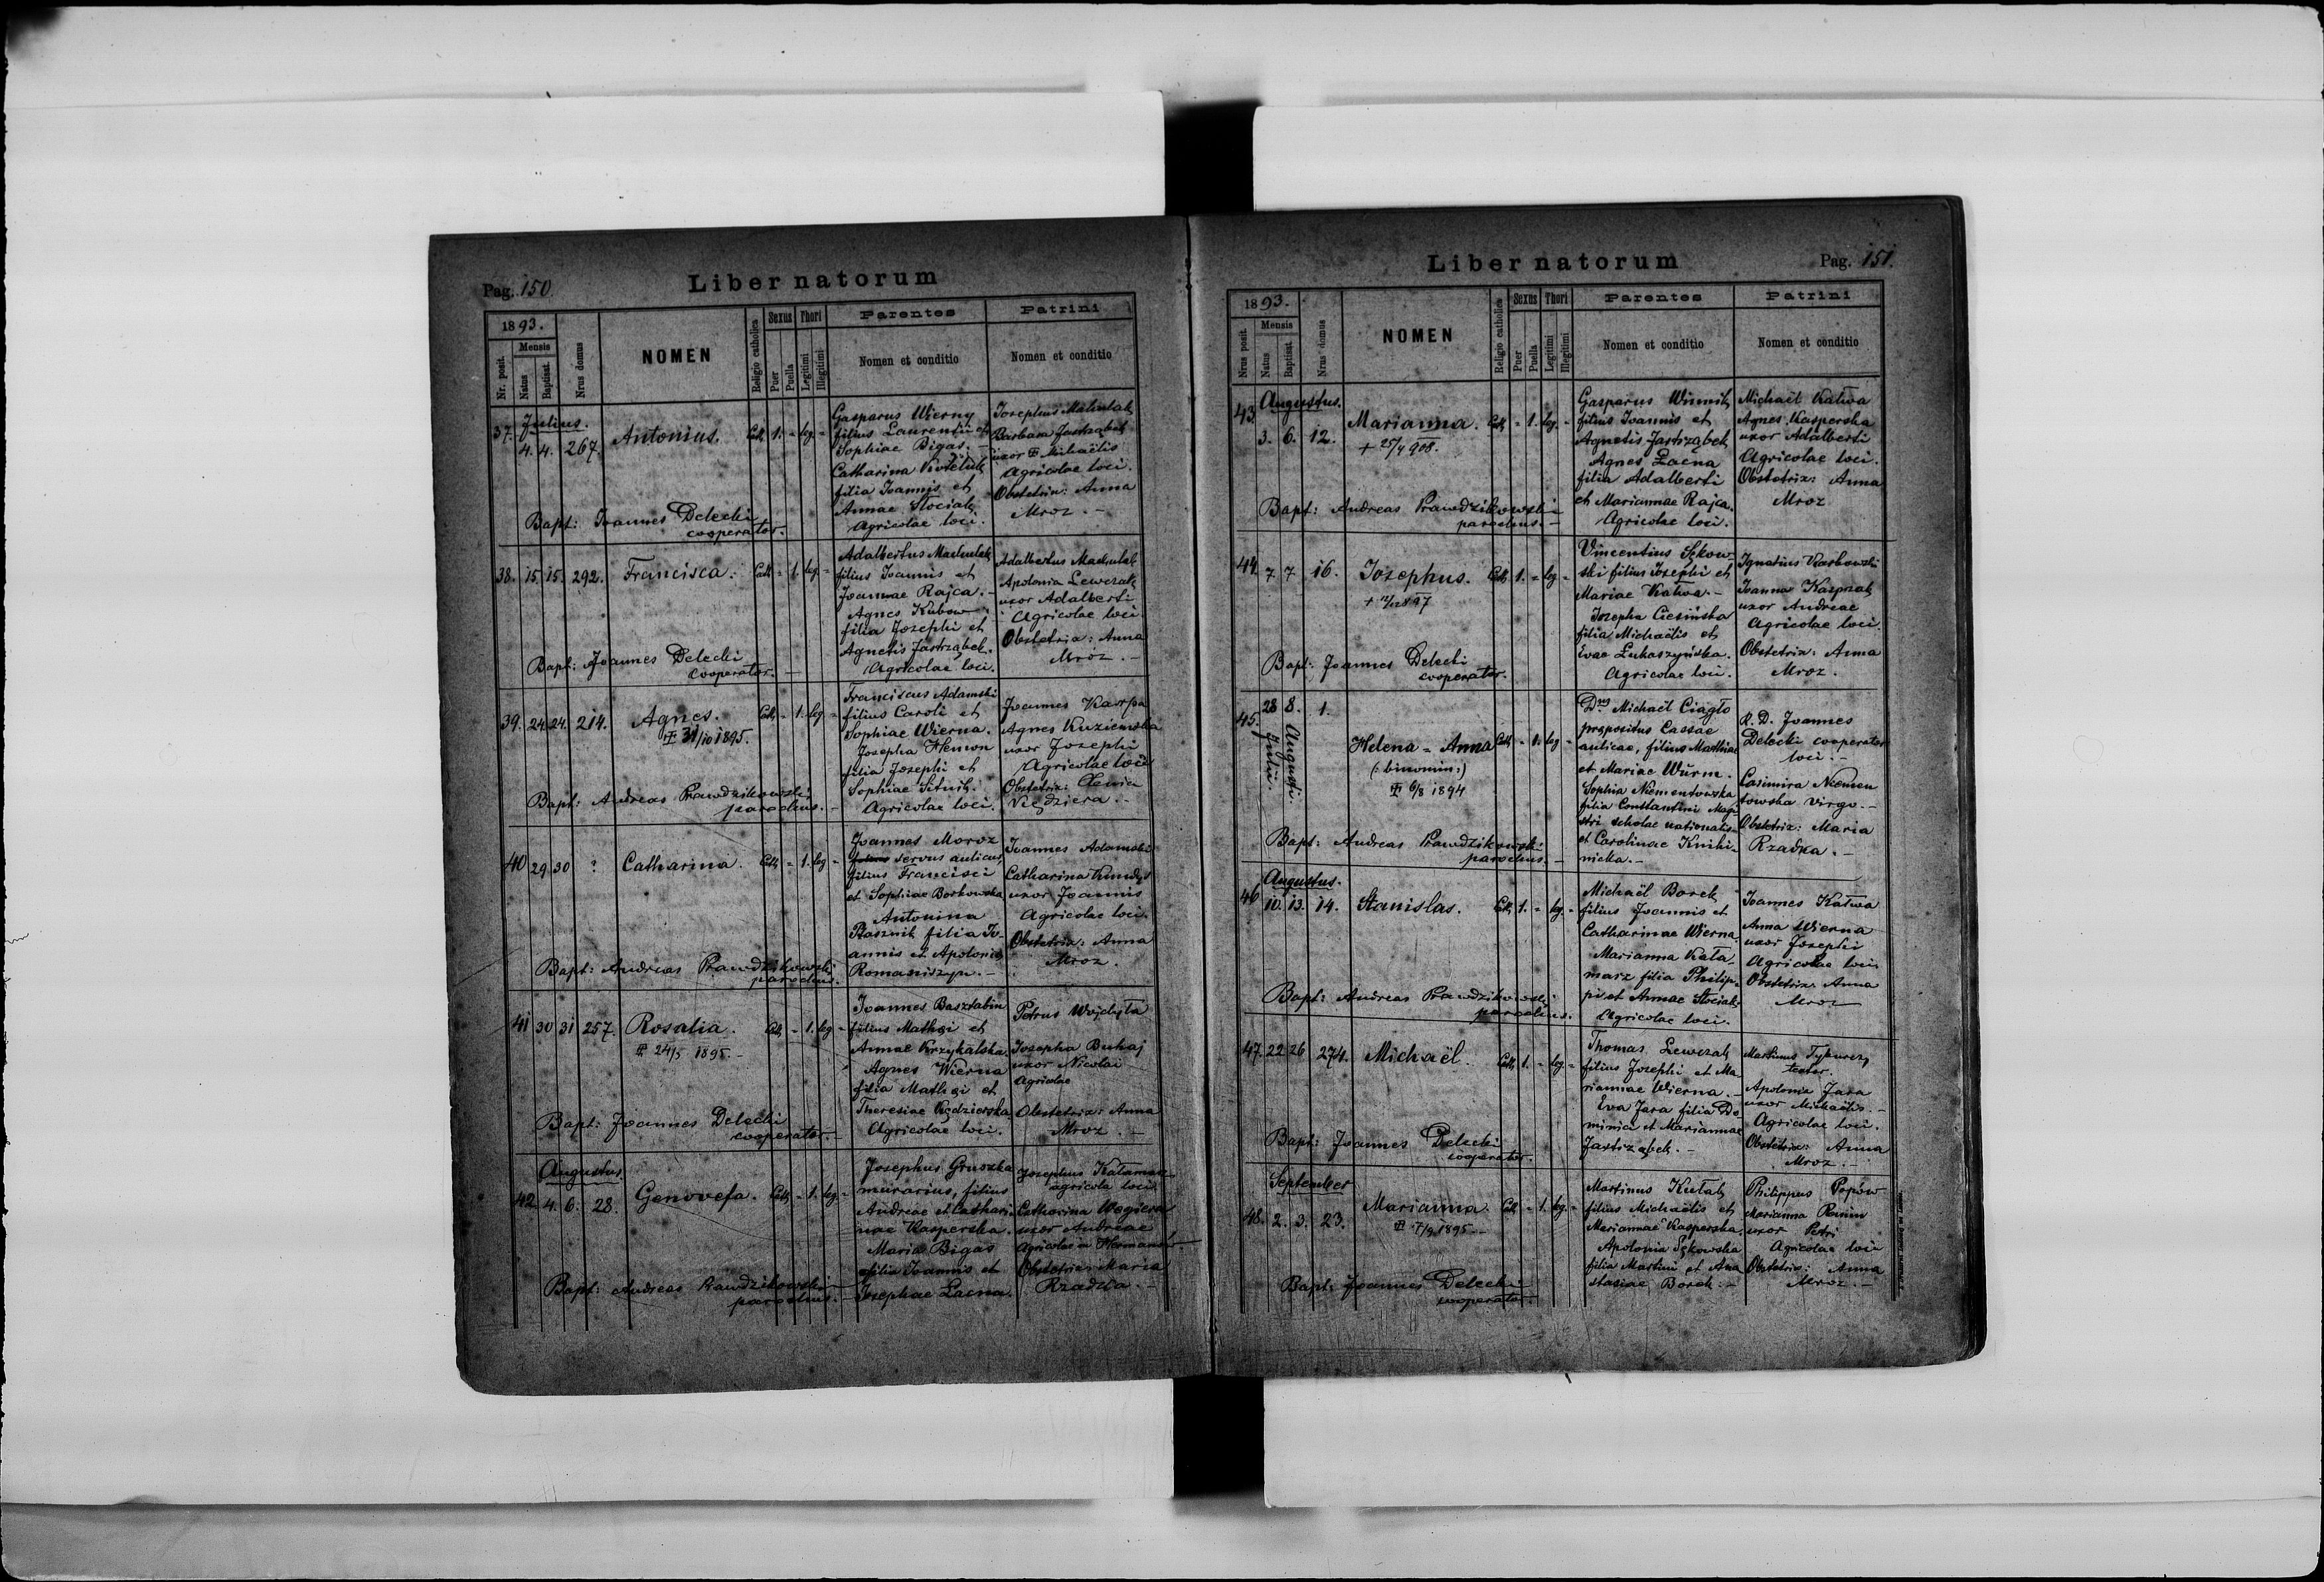 Pag. 150
Liber natorum
1893.
Nr. posit.
Mensis
Natus
Baptisat.
Nrus domus
NOMEN
Religio catholica
Sexus
Puer
Puella
Thori
Legitimi
Illegitimi
Parentes
Nomen et conditio
Patrini
Nomen et conditio
Julius.
37. 4. 4. 267. Antonius. Cath. 1. = leg. =
Gasparus Wierny
filius Laurentii et
Sophiae Bigas.
Catharina
filia Joannis et
Annae Stociak
Agricolae loci.
Josephus Machulak
Barbara Jastrząbek
uxor Michaëlis
Agricolae loci.
Obstetrix: Anna
Mroz. -
Bapt: Joannes Delecki
cooperator.
38. 15. 15. 292. Francisca. Cath. = 1. leg. =
Adalbertus Machulak
filius Joannis et
Joannae Rajca. -
Agnes Kubow
filia Josephi et
Agnetis Jastrząbek.
Agricolae loci.
Adalbertus Machulak
Apolonia Lewczak
uxor Adalberti
Agricolae loci
Obstetrix: Anna
Mróz. -
Bapt: Joannes Delecki
cooperator. -
39. 24. 24. 214. Agnes. Cath. = 1. leg. =
31/10 1895.
Franciscus Adamski
filius Caroli et
Sophiae Wierna.
Josepha Hemon
filia Josephi et
Sophiae
Agricolae loci.
Joannes Karpa
Agnes Kuziemska
uxor Josephi
Agricolae loci
Obstetrix:
Bapt: Andreas Prawdzikowski
parochus. -
40 29 30 ? Catharina. Cath. = 1. leg =
Joannes Moroz
servus aulicus,
filius Francisci
et Sophiae Borkowska
Antonina
Ptasznik filia Jo-
annis et Apoloniae
Romaniszyn. -
Joannes Adamski
Catharina Kundys
uxor Joannis
Agricolae loci.
Obstetrix: Anna
Mroz.
Bapt: Andreas Prawdzikowski
parochus.
41 30 31 257. Rosalia. Cath. = 1. leg =
24/5 1895. -
Joannes Basztabin
filius Mathei et
Annae Krzykalska.
Agnes Wierna
filia Mathei et
Theresiae Kędzierska
Agricolae loci.
Petrus Wojdyła
Josepha Buhaj
uxor Nicolai
Agricolae
Obstetrix: Anna
Mroz. -
Bapt: Joannes Delecki
cooperator. -
Augustus.
42. 4. 6. 28. Genovefa. Cath. = 1. leg. =
Josephus Gruszka
murarius, filius
Andreae et Cathari-
nae Kasperska.
Maria Bigas
filia Joannis et
Josephae Lacna.
Josephus Kałamarz
agricola loci.
Catharina
uxor Andreae
Agricolae in
Obstetrix: Maria
Rzadka. -
Bapt: Andreas Prawdzikowski
parochus. -
Liber natorum
Pag. 151.
1893.
Nrus posit.
Mensis
Natus
Baptisat.
Nrus domus
NOMEN
Religio catholica
Sexus
Puer
Puella
Thori
Legitimi
Illegitimi
Parentes
Nomen et conditio
Patrini
Nomen et conditio
Augustus.
43. 3. 6. 12. Marianna. Cath. = 1. leg. =
+ 25/4 908.
Gasparus Winnik
filius Joannis et
Agnetis Jastrząbek
Agnes Łacna
filia Adalberti
et Mariannae Rajca.
Agricolae loci.
Michaël Kałwa
Agnes Kasperska
uxor Adalberti
Agricolae loci.
Obstetrix: Anna
Mroz
Bapt: Andreas Prawdzikowski
parochus. -
44. 7 7 16. Josephus. Cath. 1. = leg =
Vincentius Sękow-
ski filius Josephi et
Mariae Kałwa. -
Josepha Ciesińska
filia Michaëlis et
Evae Łukaszyńska.
Agricolae loci.
Ignatius Karkowski
Joanna Kasprzak
uxor Andreae
Agricolae loci.
Obstetrix: Anna
Mroz.
Bapt: Joannes Delecki
cooperator.
45. 28 Julii. 8. Augusti. 1. Helena = Anna Cath. = 1. leg =
(: binomin:)
6/8 1894
Dnus Michaël Ciągło
praepositus Cassae
aulicae, filius Mathiae
et Mariae Würm.
Sophia Niementowska
filia Constantini Magi-
stri scholae nationalis
et Carolinae Knihi-
nicka. -
R. D. Joannes
Delecki cooperator
loci. -
Casimira Niemen
towska virgo. -
Obstetrix: Maria
Rzadka. -
Bapt: Andreas Prawdzikowski
parochus. -
Augustus.
46 10. 13. 14. Stanislas. Cath. 1. = leg. =
Michaël Borek
filius Joannis et
Catharinae Wierna.
Marianna Kała-
marz filia Philip-
pi et Annae Stociak
Agricolae loci.
Joannes Kałwa
Anna Wierna
uxor Josephi
Agricolae loci
Obstetrix: Anna
Mroz
Bapt: Andreas Prawdzikowski
parochus.
47. 22 26 274. Michaël. Cath. 1. = leg. =
Thomas Lewczak
filius Josephi et Ma
riannae Wierna. -
Eva Jara filia Do-
minici et Mariannae
Jastrząbek. -
Martinus
Apolonia Jara
uxor Michaëlis. -
Agricolae loci.
Obstetrix: Anna
Mroz. -
Bapt: Joannes Delecki
cooperator.
September
48. 2. 3. 23. Marianna. Cath. = 1. leg. =
7/9 1895. -
Martinus Kułak
filius Michaëlis et
Mariannae Kasperska.
Apolonia Sękowska
filia Martini et Ana
stasiae Borek. -
Philippus Popów
Marianna
uxor Petri
Agricolae loci
Obstetrix: Anna
Mroz. -
Bapt: Joannes Delecki
cooperator.